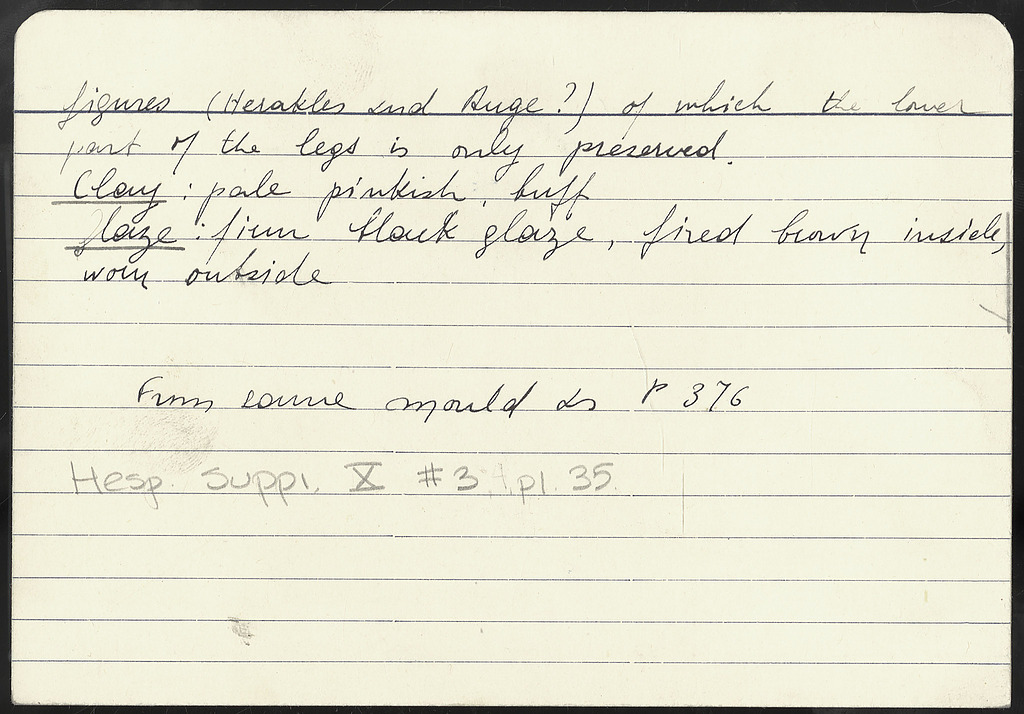 figures (Herakles and Auge?) of which the lower
part of the legs is only preserved.
Clay : pale pinkish, buff
Glaze : firm black glaze, fired brown inside,
worn outside
From same mould as P 376
Hesp. Suppl. X #34, pl. 35.